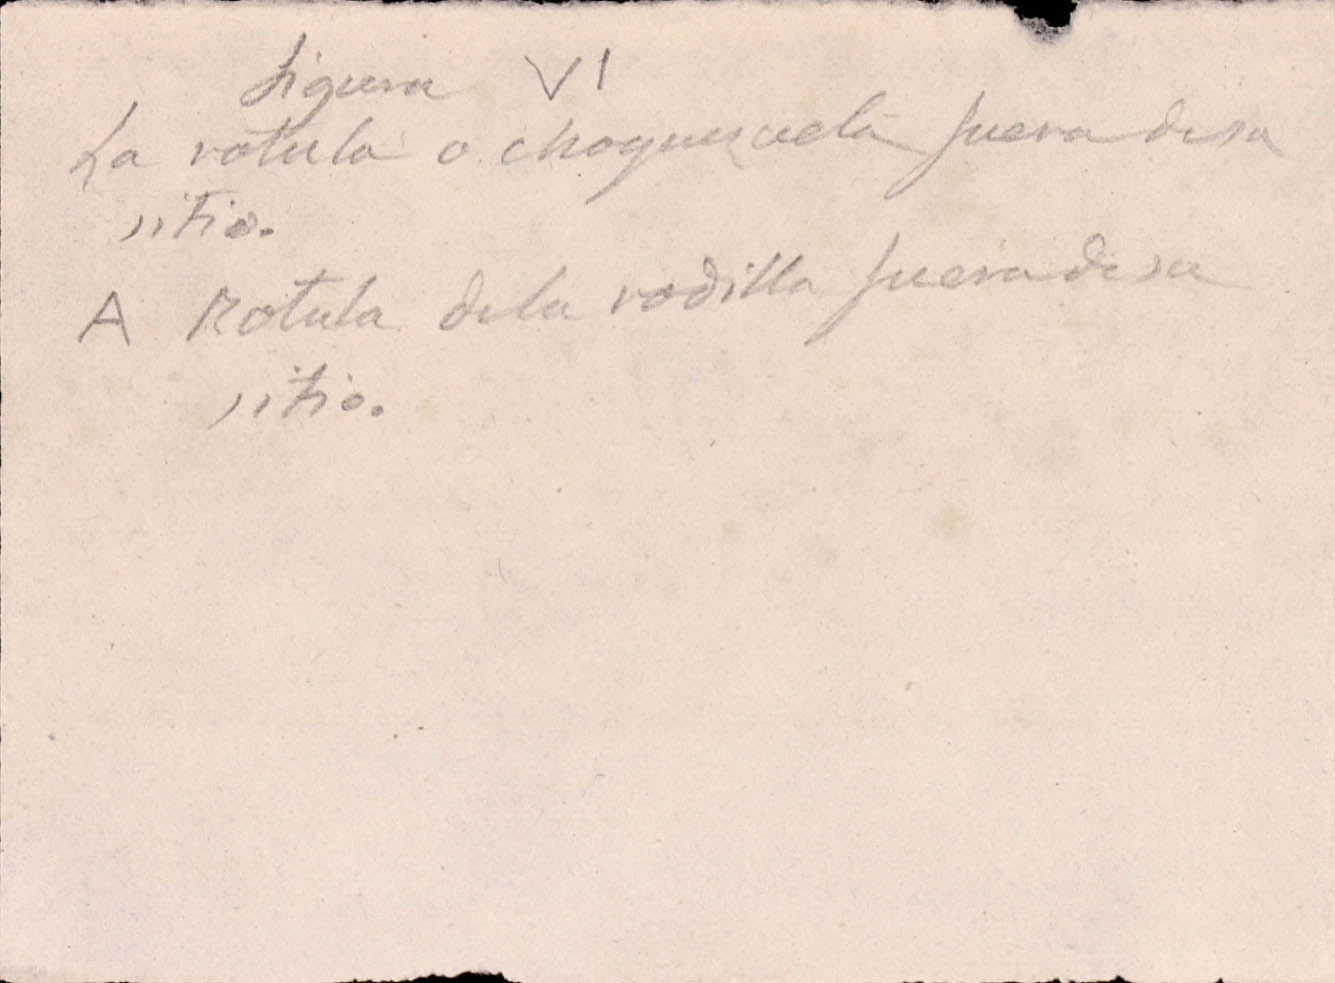 Figura VI
La rotula o choquezuela fuera de su
sitio.
A Rotula de la rodilla fuera de su
sitio.